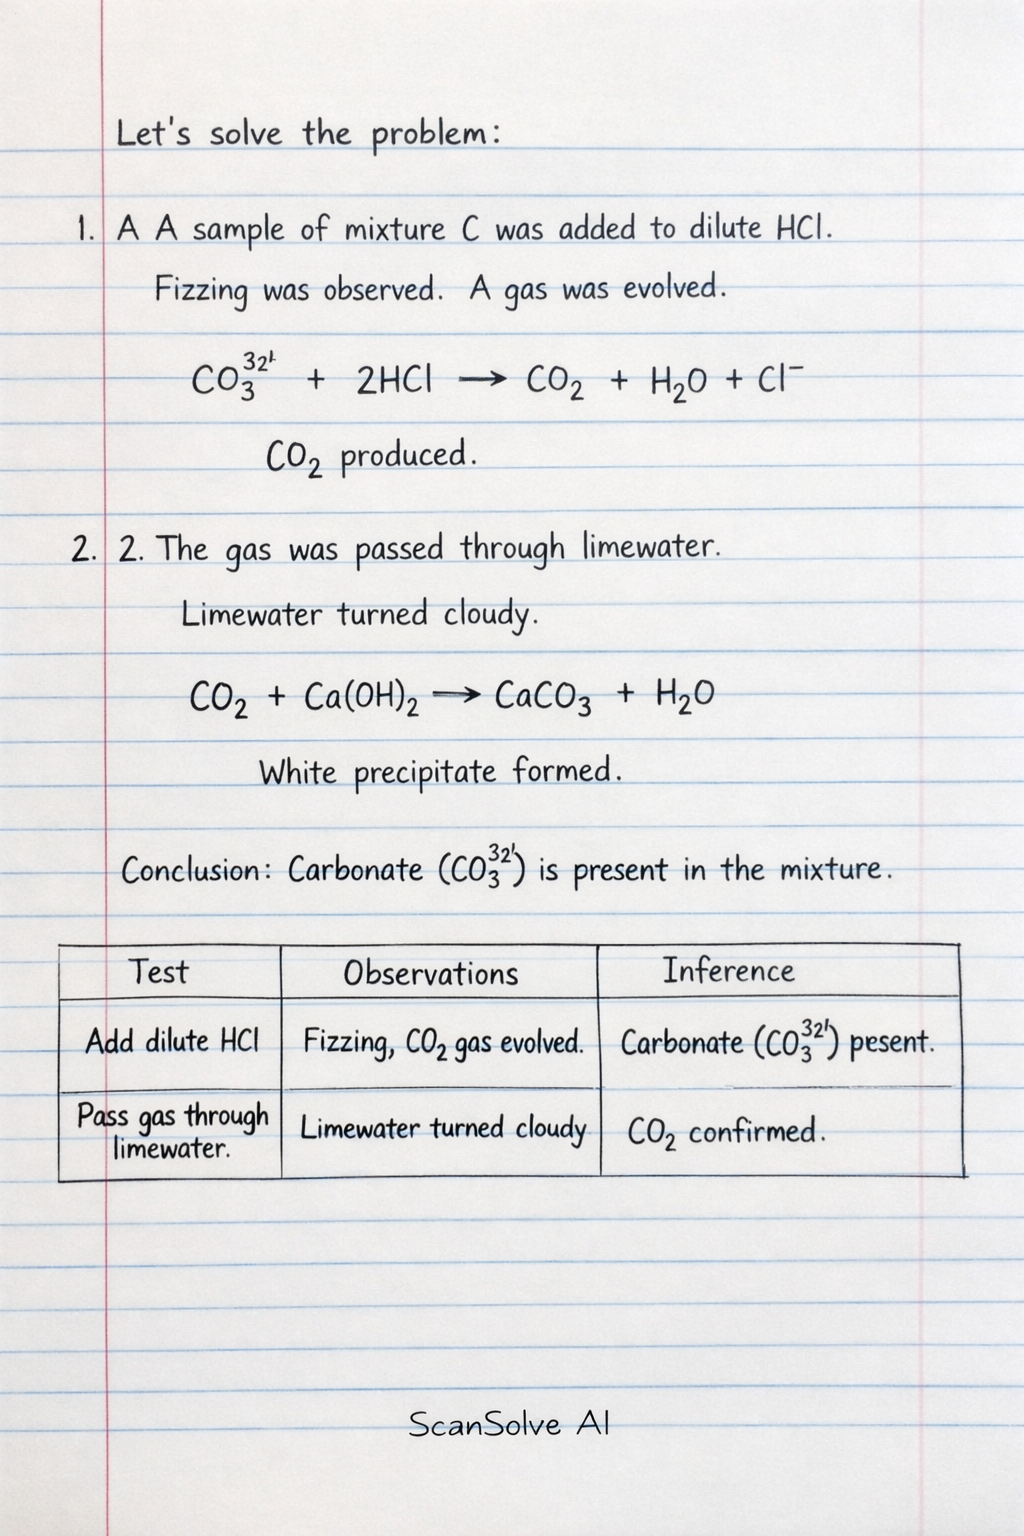 Let's solve the problem:
1. A A sample of mixture C was added to dilute HCl.
Fizzing was observed. A gas was evolved.
CO₃³²ᴸ + 2HCl → CO₂ + H₂O + Cl⁻
CO₂ produced.
2. 2. The gas was passed through limewater.
Limewater turned cloudy.
CO₂ + Ca(OH)₂ → CaCO₃ + H₂O
White precipitate formed.
Conclusion: Carbonate (CO₃³²') is present in the mixture.
Test Observations Inference
Add dilute HCl Fizzing, CO₂ gas evolved. Carbonate (CO₃³²') pesent.
Pass gas through
limewater. Limewater turned cloudy CO₂ confirmed.
ScanSolve AI